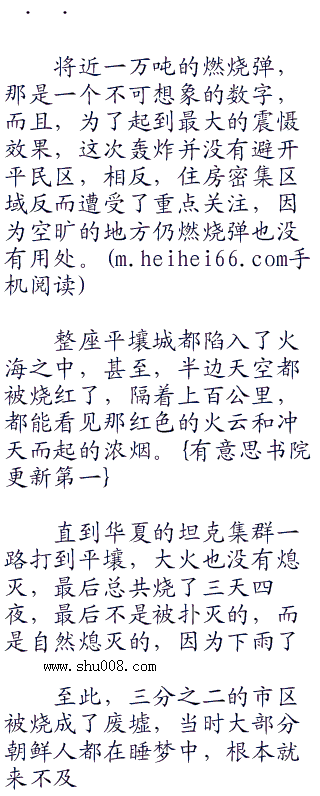 将近一万吨的燃烧弹，
那是一个不可想象的数字，
而且，为了起到最大的震慑
效果，这次轰炸并没有避开
平民区，相反，住房密集区
域反而遭受了重点关注，因
为空旷的地方仍燃烧弹也没
有用处。(m.heihei66.com手
机阅读)
整座平壤城都陷入了火
海之中，甚至，半边天空都
被烧红了，隔着上百公里，
都能看见那红色的火云和冲
天而起的浓烟。{有意思书院
更新第一}
直到华夏的坦克集群一
路打到平壤，大火也没有熄
灭，最后总共烧了三天四
夜，最后不是被扑灭的，而
是自然熄灭的，因为下雨了
www.shu008.com
至此，三分之二的市区
被烧成了废墟，当时大部分
朝鲜人都在睡梦中，根本就
来不及